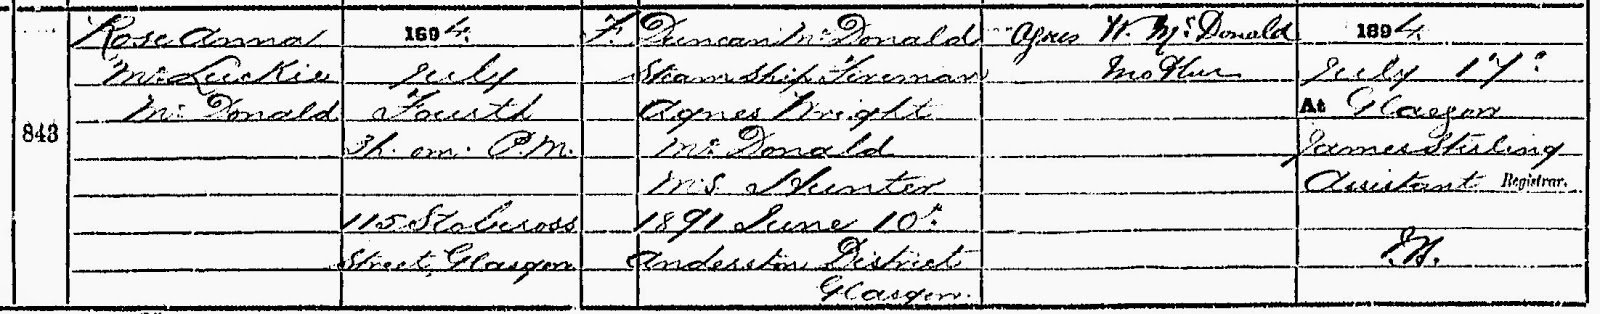 843
Rose Anna
McLuckie
McDonald
1894.
July
Fourth
3h. om. P.M.
115 Stobcross
Street, Glasgow
F.
Duncan McDonald
Steam Ship Fireman
Agnes Wright
McDonald
M.S. Hunter
1891 June 10th
Anderston District
Glasgow.
Agnes W. McDonald
Mother
1894.
July 17th
At Glasgow
James Stirling
Assistant Registrar.